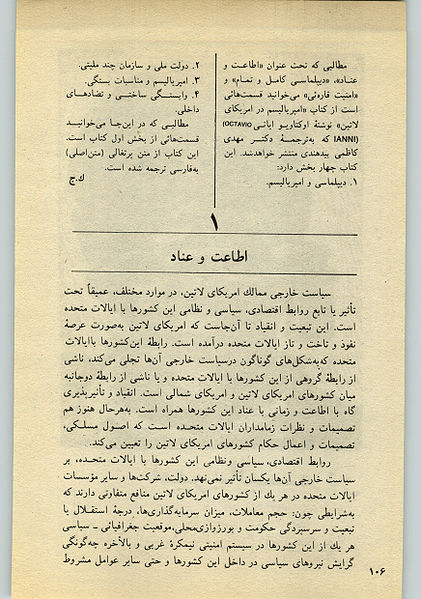 مطالبی که تحت عنوان «اطاعت و
عناد»، «دیپلماسی کامل و تمام» و
«امنیت قاره‌ئی» می‌خوانید قسمت‌هائی
است از کتاب «امپریالیسم در امریکای
لاتین» نوشتهٔ اوکتاویو ایانی (OCTAVIO
IANNI) که به‌ترجمهٔ دکتر مهدی
کاظمی بیدهندی منتشر خواهدشد. این
کتاب چهار بخش دارد:
۱. دیپلماسی و امپریالیسم.
۲. دولت ملی و سازمان چند ملیتی.
۳. امپریالیسم و مناسبات بستگی.
۴. وابستگی ساختی و تضادهای
داخلی.
مطالبی که در این‌جا می‌خوانید
قسمت‌هائی از بخش اول کتاب است.
این کتاب از متن پرتغالی (متن‌اصلی)
به‌فارسی ترجمه شده است.
ك.ج
۱
اطاعت و عناد
سیاست خارجی ممالك امریکای لاتین، در موارد مختلف، عمیقاً تحت
تأثیر یا تابع روابط اقتصادی، سیاسی و نظامی این کشورها با ایالات متحده
است. این تبعیت و انقیاد تا آن‌جاست که امریکای لاتین به‌صورت عرصهٔ
نفوذ و تاخت و تاز ایالات متحده درآمده است. رابطهٔ این‌کشورها باایالات
متحده که‌به‌شکل‌های گوناگون درسیاست خارجی آن‌ها تجلی می‌کند، ناشی
از رابطهٔ گروهی از این کشورها با ایالات متحده و یا ناشی از رابطهٔ دوجانبه
میان کشورهای امریکای لاتین و امریکای شمالی است. انقیاد و تأثیرپذیری
گاه با اطاعت و زمانی با عناد این کشورها همراه است. به‌هرحال هنوز هم
تصمیمات و نظرات زمامداران ایالات متحده است که اصول مسلکی،
تصمیمات و اعمال حکام کشورهای امریکای لاتین را تعیین می‌کند.
روابط اقتصادی، سیاسی ونظامی این کشورها با ایالات متحده، بر
سیاست خارجی آن‌ها یکسان تأثیر نمی‌نهد. دولت، شرکت‌ها و سایر مؤسسات
ایالات متحده در هر یك از کشورهای امریکای لاتین منافع متفاوتی دارند که
به‌شرایطی چون: حجم معاملات، میزان سرمایه‌گذاری‌ها، درجهٔ استقلال یا
تبعیت و سرسپردگی حکومت و بورژوازی‌محلی، موقعیت جغرافیائی ـ سیاسی
هر یك از این کشورها در سیستم امنیتی نیمکرهٔ غربی و بالأخره چه‌گونگی
گرایش نیروهای سیاسی در داخل این کشورها و حتی سایر عوامل مشروط
۱۰۶